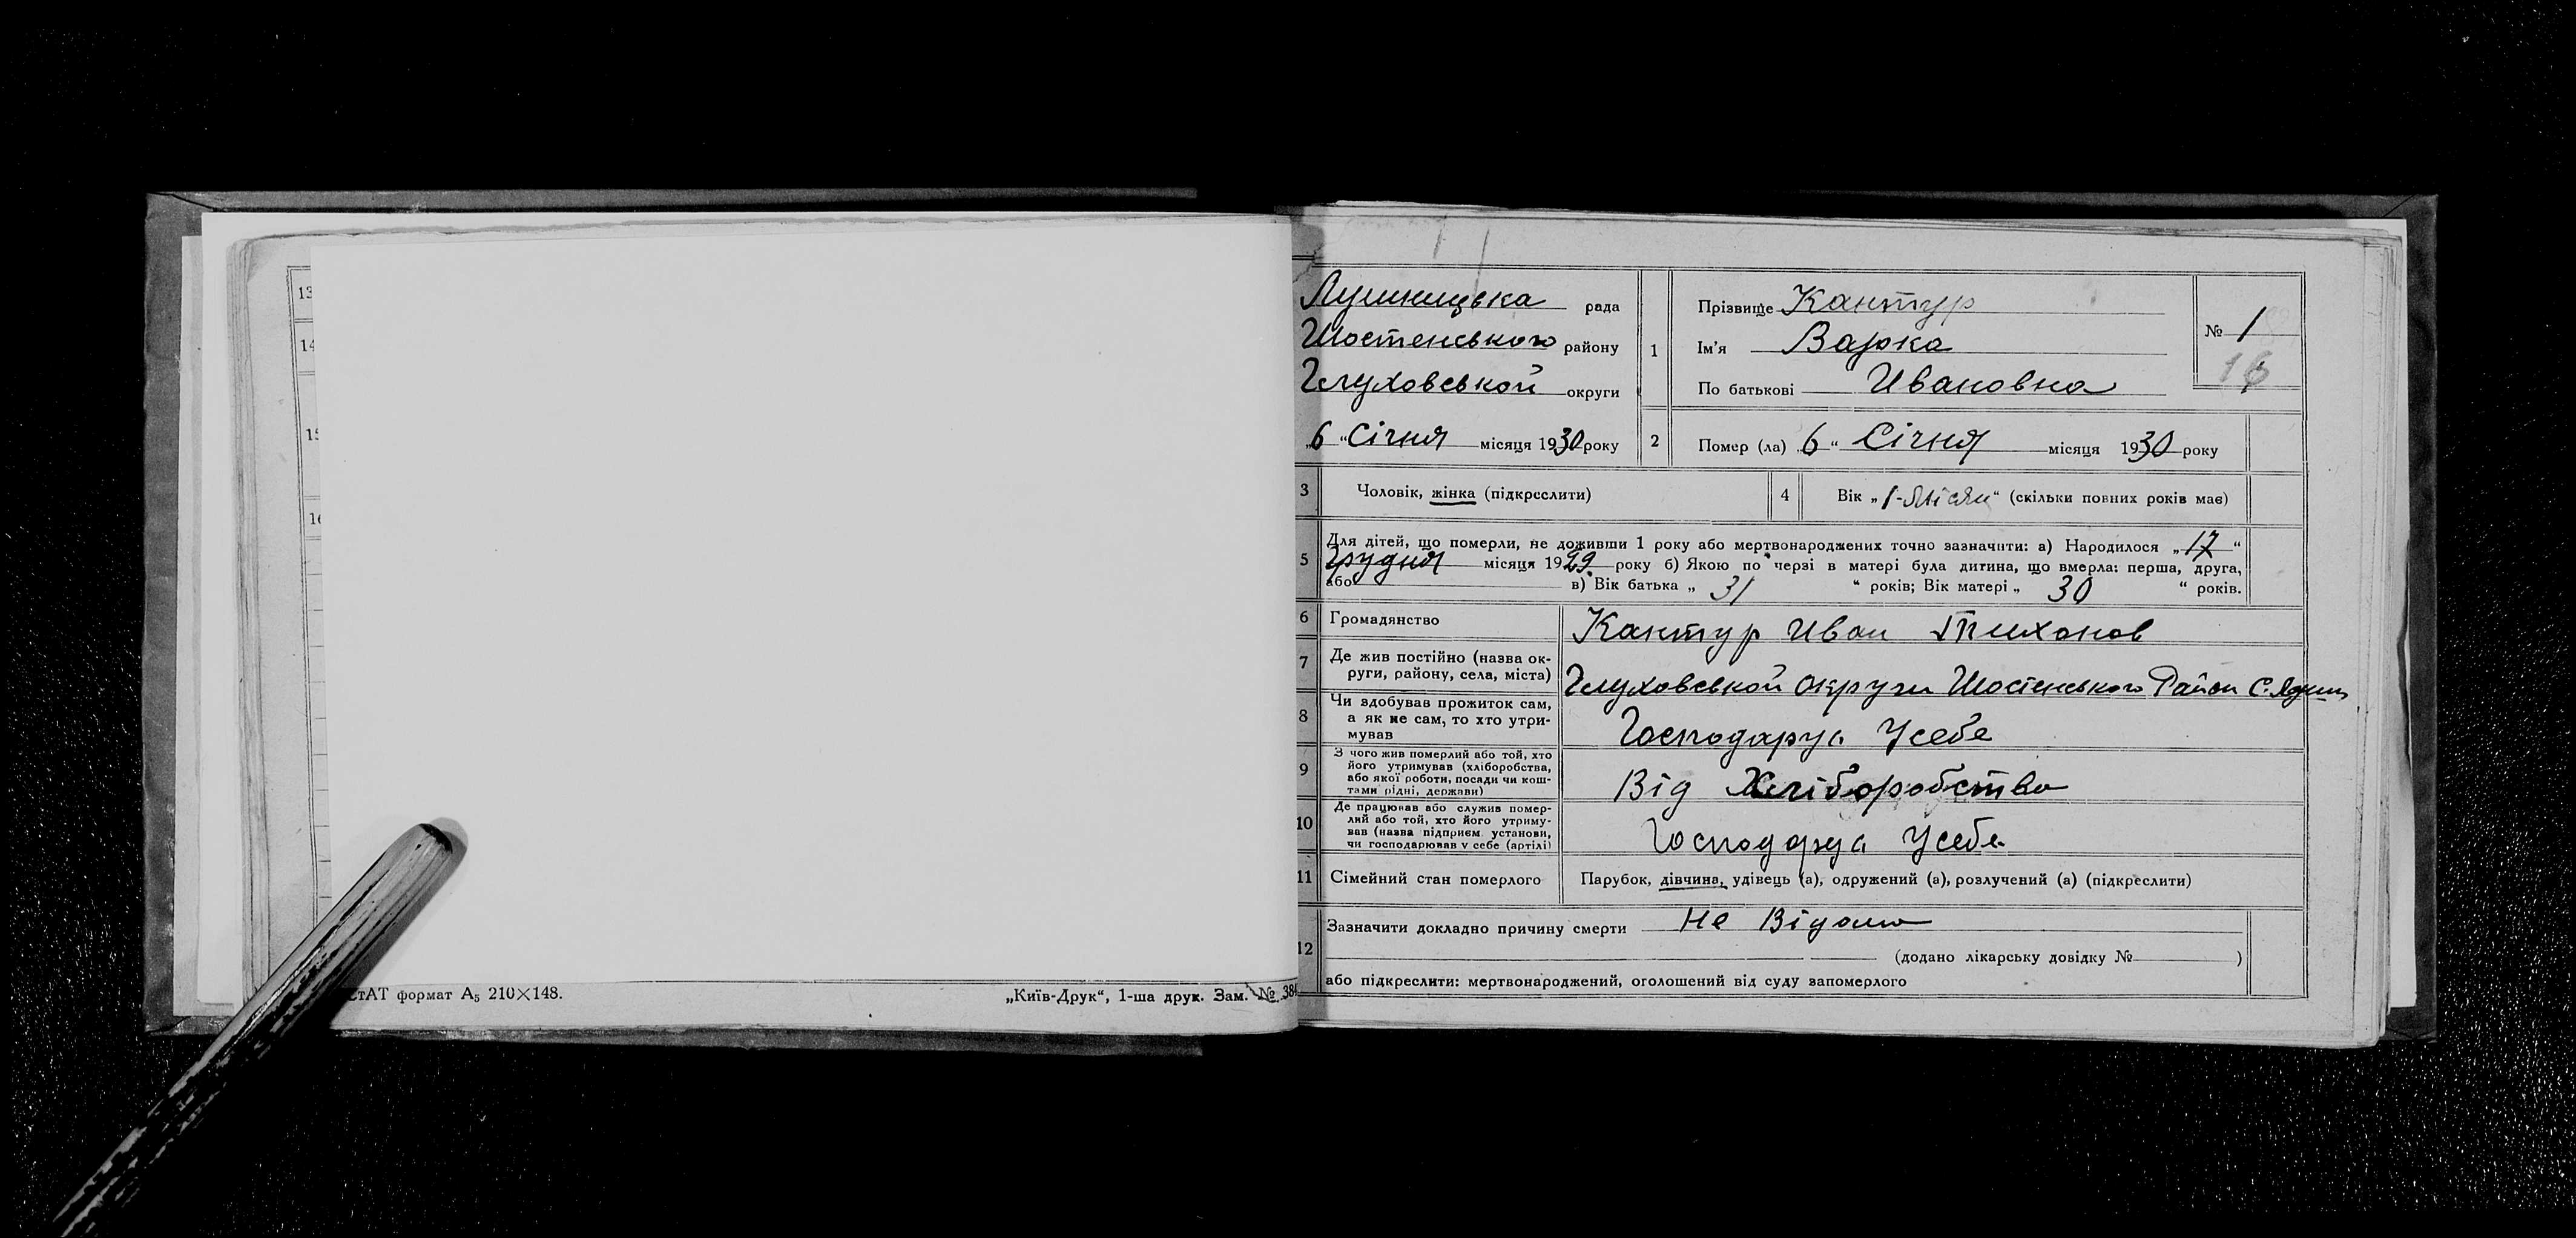 13
14
15
16
СтАТ формат А5 210×148.
„Київ-Друк“, 1-ша друк. Зам. № 384
рада
Шостенського району
Глуховськой округи
„6“ Січня місяця 1930 року
1
Прізвище Кантур
Ім'я Варка
По батькові Ивановна
№ 1
16
2
Помер (ла) „6“ Січня місяця 1930 року
3 Чоловік, жінка (підкреслити)
4 Вік „1-місяц“ (скільки повних років має)
5 Для дітей, що померли, не доживши 1 року або мертвонароджених точно зазначити: а) Народилося „17“
Грудня місяця 1929 року б) Якою по черзі в матері була дитина, що вмерла: перша, друга,
або в) Вік батька „31“ років; Вік матері „30“ років.
6 Громадянство Кантур Иван Тихонов
7 Де жив постійно (назва ок-
руги, району, села, міста) Глуховськой округи Шостенського Район С.
8 Чи здобував прожиток сам,
а як не сам, то хто утри-
мував Господарує Усебе
9 З чого жив померлий або той, хто
його утримував (хліборобства,
або якої роботи, посади чи кош-
тами рідні, держави) Від Хліборобства
10 Де працював або служив помер-
лий або той, хто його утриму-
вав (назва підприєм. установи,
чи господарював у себе (артілі) Господарує Усебе
11 Сімейний стан померлого Парубок, дівчина, удівець (а), одружений (а), розлучений (а) (підкреслити)
12 Зазначити докладно причину смерти Не Відомо
(додано лікарську довідку № )
або підкреслити: мертвонароджений, оголошений від суду запомерлого